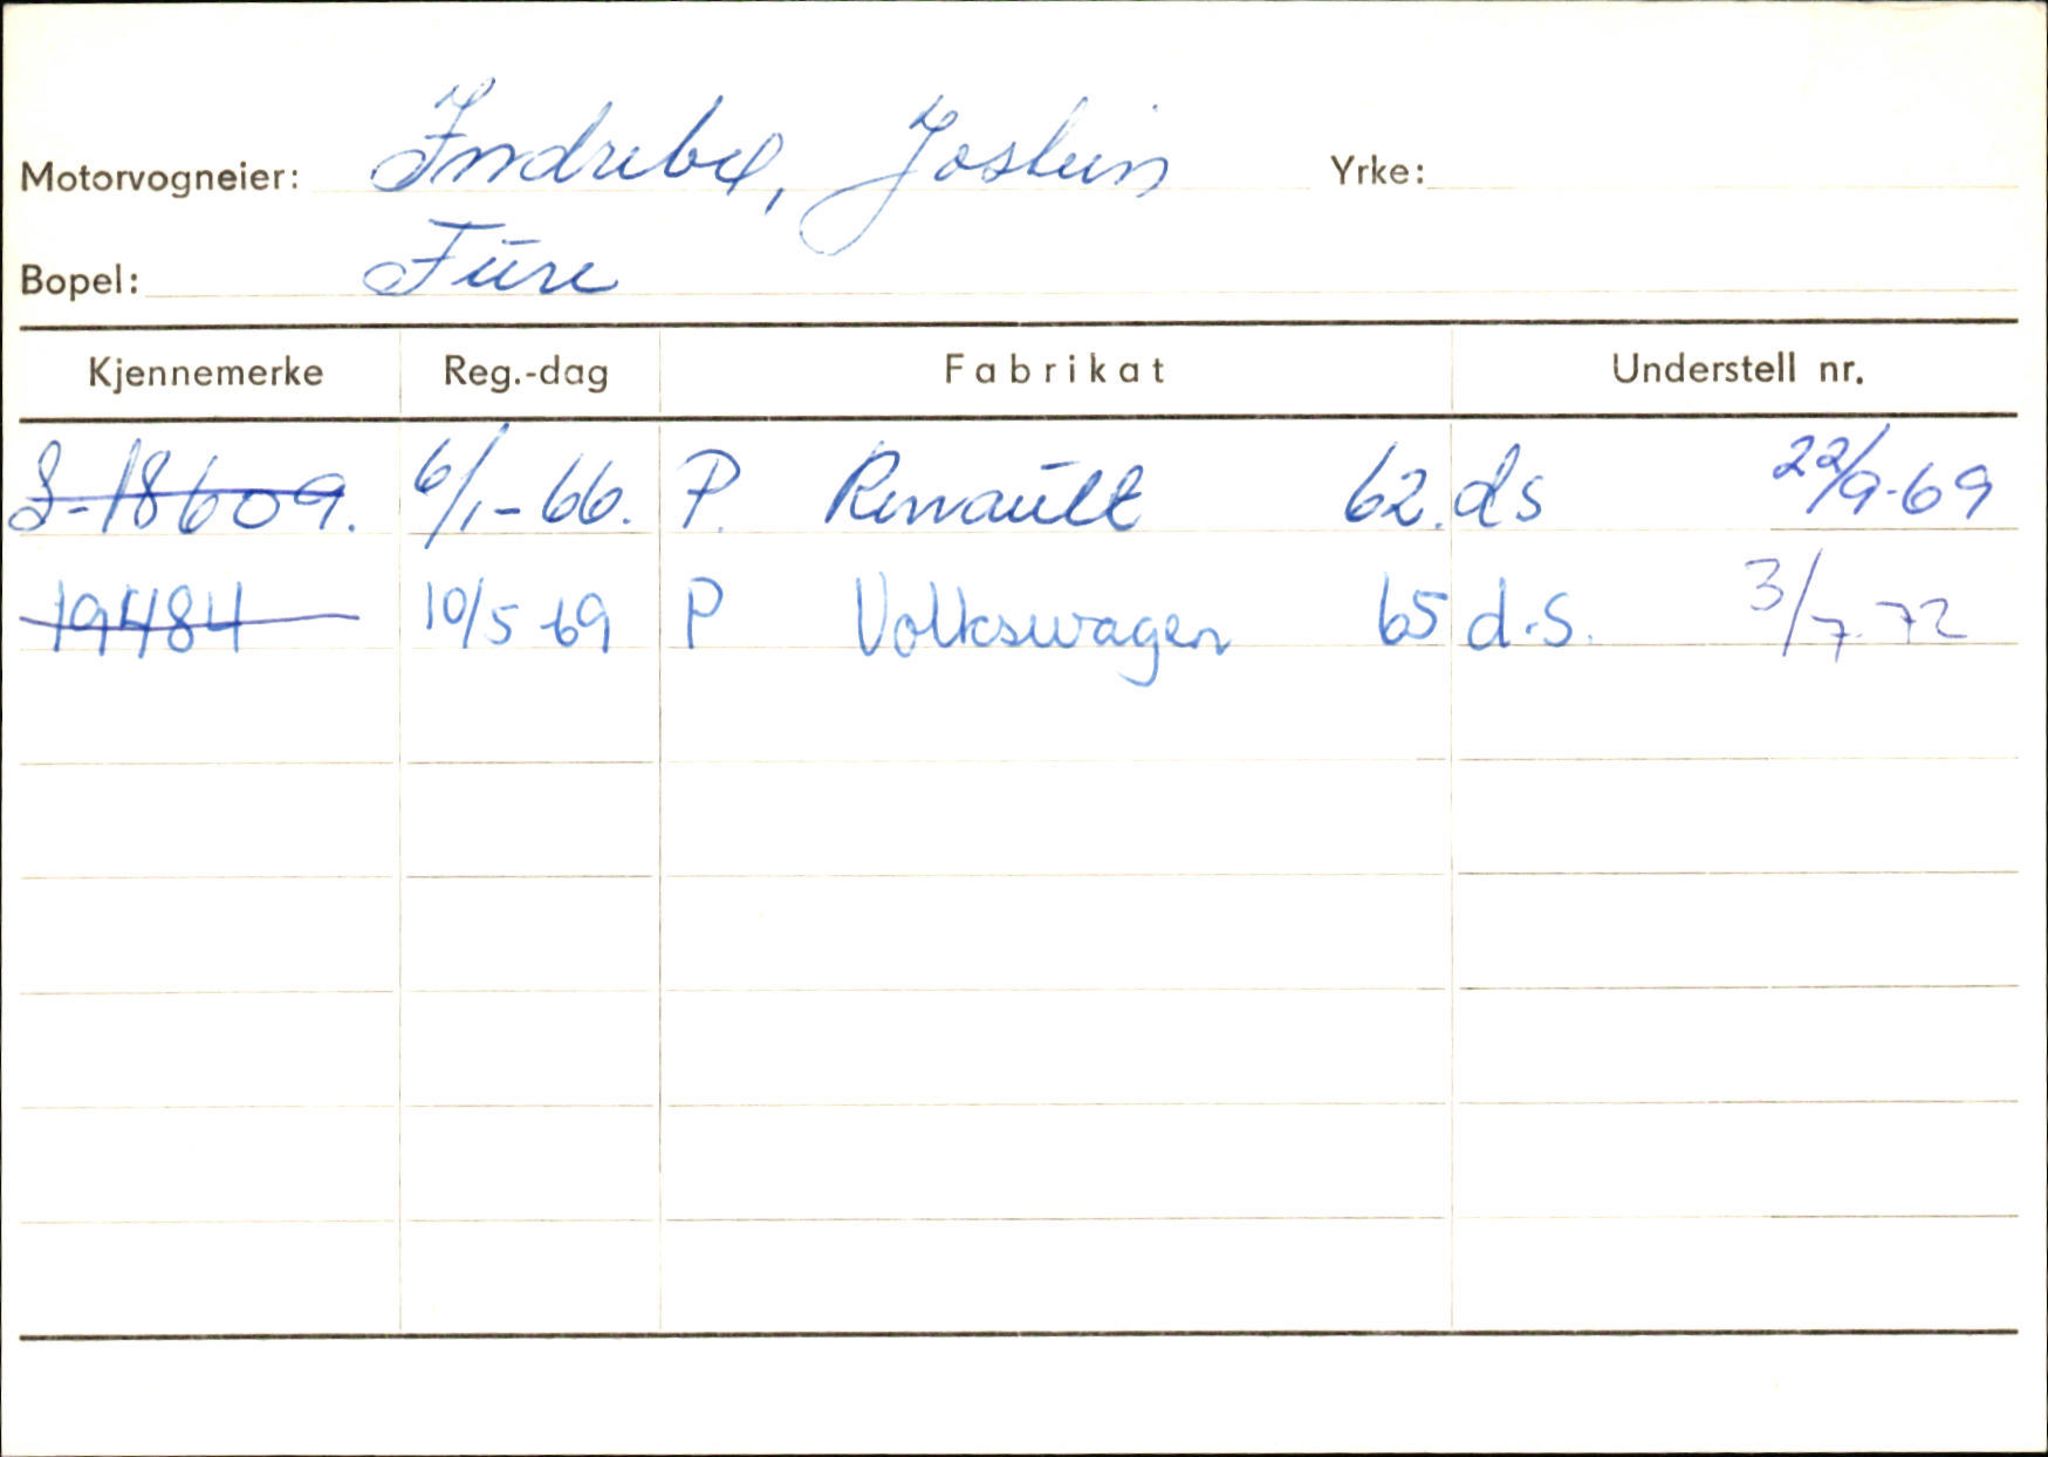 Motorvogneier: Indrebø, Jostein Yrke:
Bopel: Fure
Kjennemerke Reg.-dag Fabrikat Understell nr.
S-18609. 6/1-66. P. Renault 62. ds 22/9-69
19484 10/5-69 P Volkswagen 65 d.s. 3/7.72